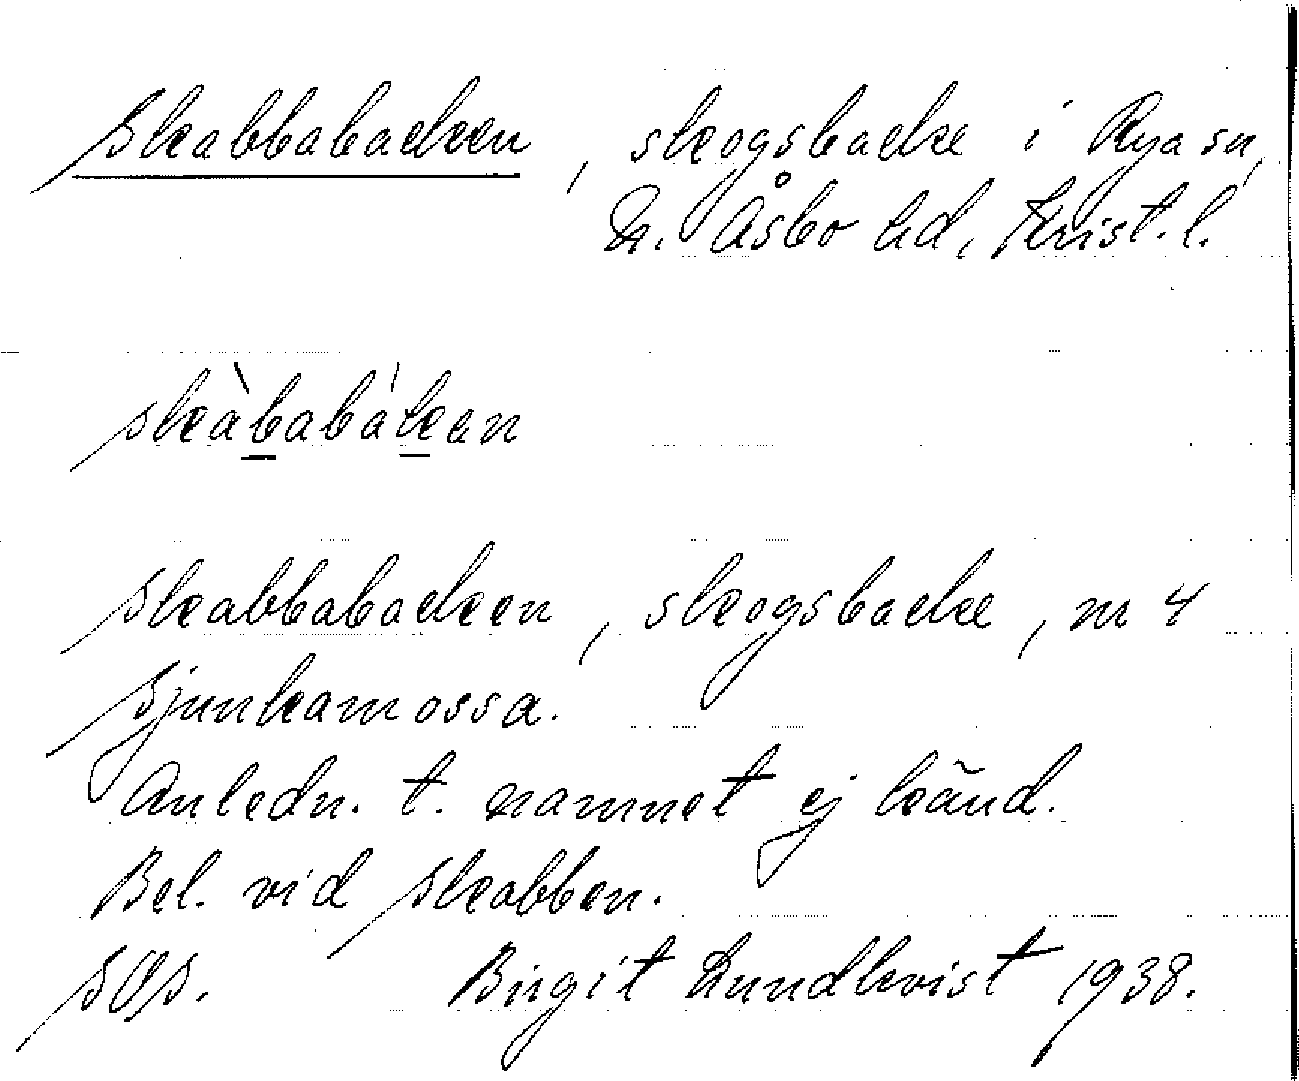 Skabbabacken, skogsbacke i Rya sn,
N. Åsbo hd, Krist. l.
skàbabákan
Skabbabacken, skogsbacke, nr 4
Sjunkamossa.
Anledn. t. namnet ej känd.
Bel. vid Skabben.
SOS. Birgit Lundkvist 1938.